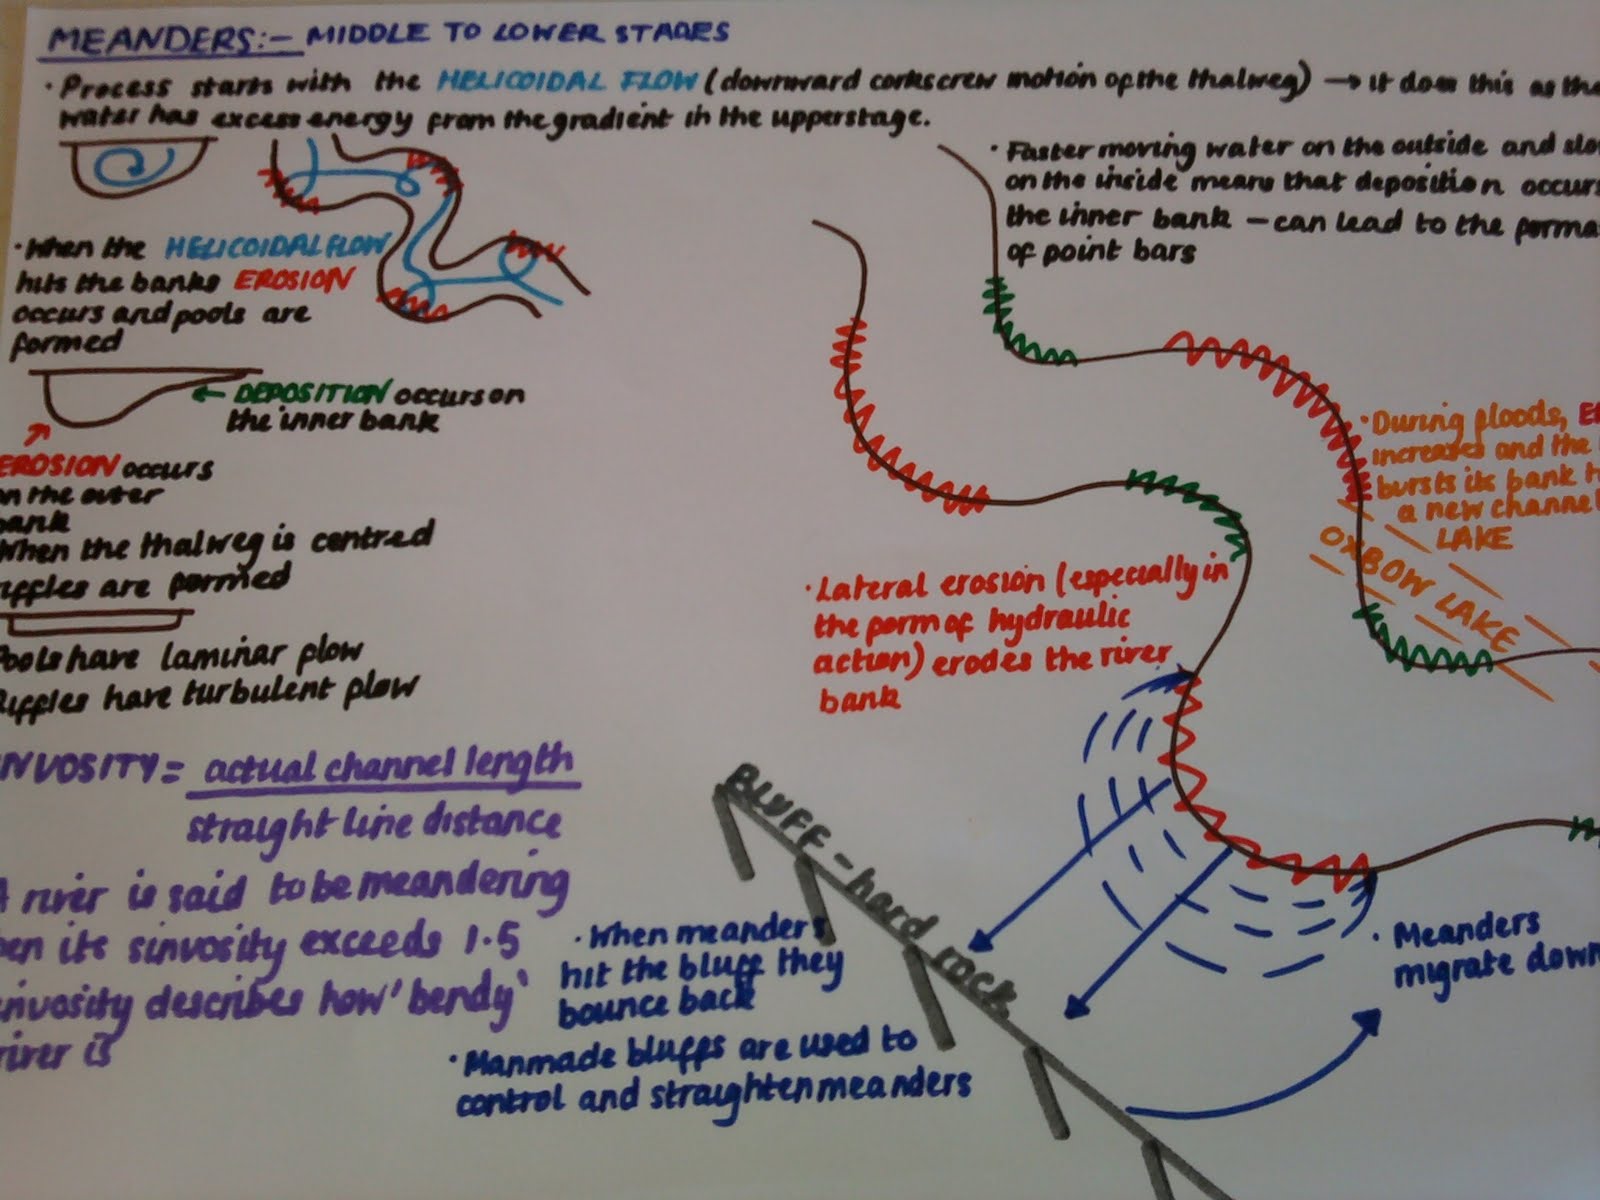 MEANDERS:- MIDDLE TO LOWER STAGES
· Process starts with the HELICOIDAL FLOW (downward corkscrew motion of the thalweg) → it does this as the
water has excess energy from the gradient in the upperstage.
· When the HELICOIDAL FLOW
hits the banks EROSION
occurs and pools are
formed
← DEPOSITION occurs on
the inner bank
EROSION occurs
on the outer
bank
When the thalweg is centred
riffles are formed
Pools have laminar flow
Riffles have turbulent flow
INVOSITY = actual channel length
straight line distance
A river is said to be meandering
hen its sinvosity exceeds 1.5
invosity describes how 'bendy'
river is
· Faster moving water on the outside and slo
on the inside means that deposition occurs
the inner bank - can lead to the forma
of point bars
· During floods, E
increases and the
bursts its bank t
a new channel
LAKE
OXBOW LAKE
· Lateral erosion (especially in
the form of hydraulic
action) erodes the river
bank
BLUFF - hard rock
· When meanders
hit the bluff they
bounce back
· Manmade bluffs are used to
control and straighten meanders
· Meanders
migrate down